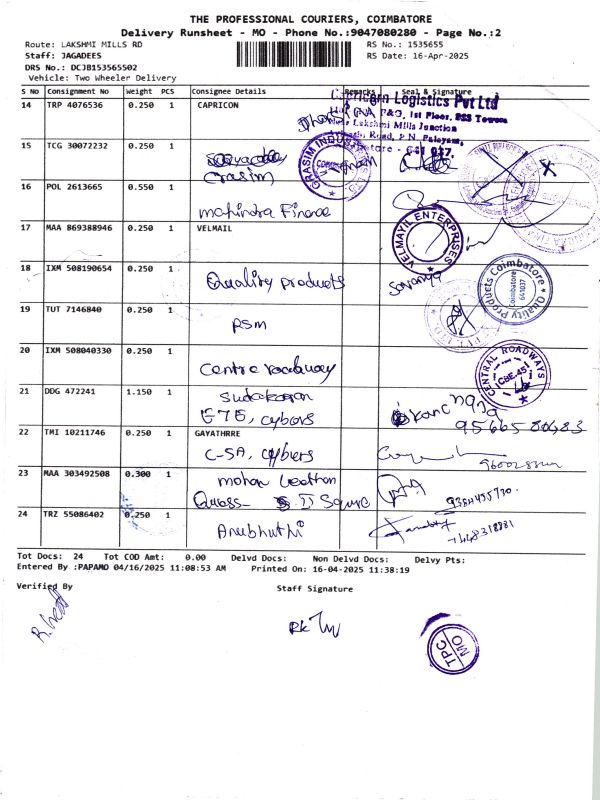 THE PROFESSIONAL COURIERS, COIMBATORE
Delivery Runsheet - MO - Phone No.:9047080280 - Page No.:2
Route: LAKSHMI MILLS RD RS No.: 1535655
Staff: JAGADEES RS Date: 16-Apr-2025
DRS No.: DCJB153565502
Vehicle: Two Wheeler Delivery
S No Consignment No Weight PCS Consignee Details Remarks Seal & Signature
14 TRP 4076536 0.250 1 CAPRICON
Logistics Pvt Ltd
P&G, 1st Floor, BSS Towers
Lakshmi Mills Junction
Road, P.N. Palayam,
641 037.
15 TCG 30072232 0.250 1
Grasim
GRASIM INDUS
16 POL 2613665 0.550 1
Mahindra Finance
17 MAA 869388946 0.250 1 VELMAIL
VELMAYIL ENTERPRISES
18 IXM 508190654 0.250 1
Quality products Saranya
Quality Products Coimbatore
Coimbatore
641037
19 TUT 7146840 0.250 1
PSM
20 IXM 508040330 0.250 1
Centre roadway
CENTRAL ROADWAYS
CBE-45
21 DDG 472241 1.150 1 Sudakaran
ETE, cybors
22 TMI 10211746 0.250 1 GAYATHRRE
C-SA, cybers
23 MAA 303492508 0.300 1 mohan
Quess- Square
24 TRZ 55086402 0.250 1
Anubhuthi
Tot Docs: 24 Tot COD Amt: 0.00 Delvd Docs: Non Delvd Docs: Delvy Pts:
Entered By :PAPAMO 04/16/2025 11:08:53 AM Printed On: 16-04-2025 11:38:19
Verified By Staff Signature
TPC
MO